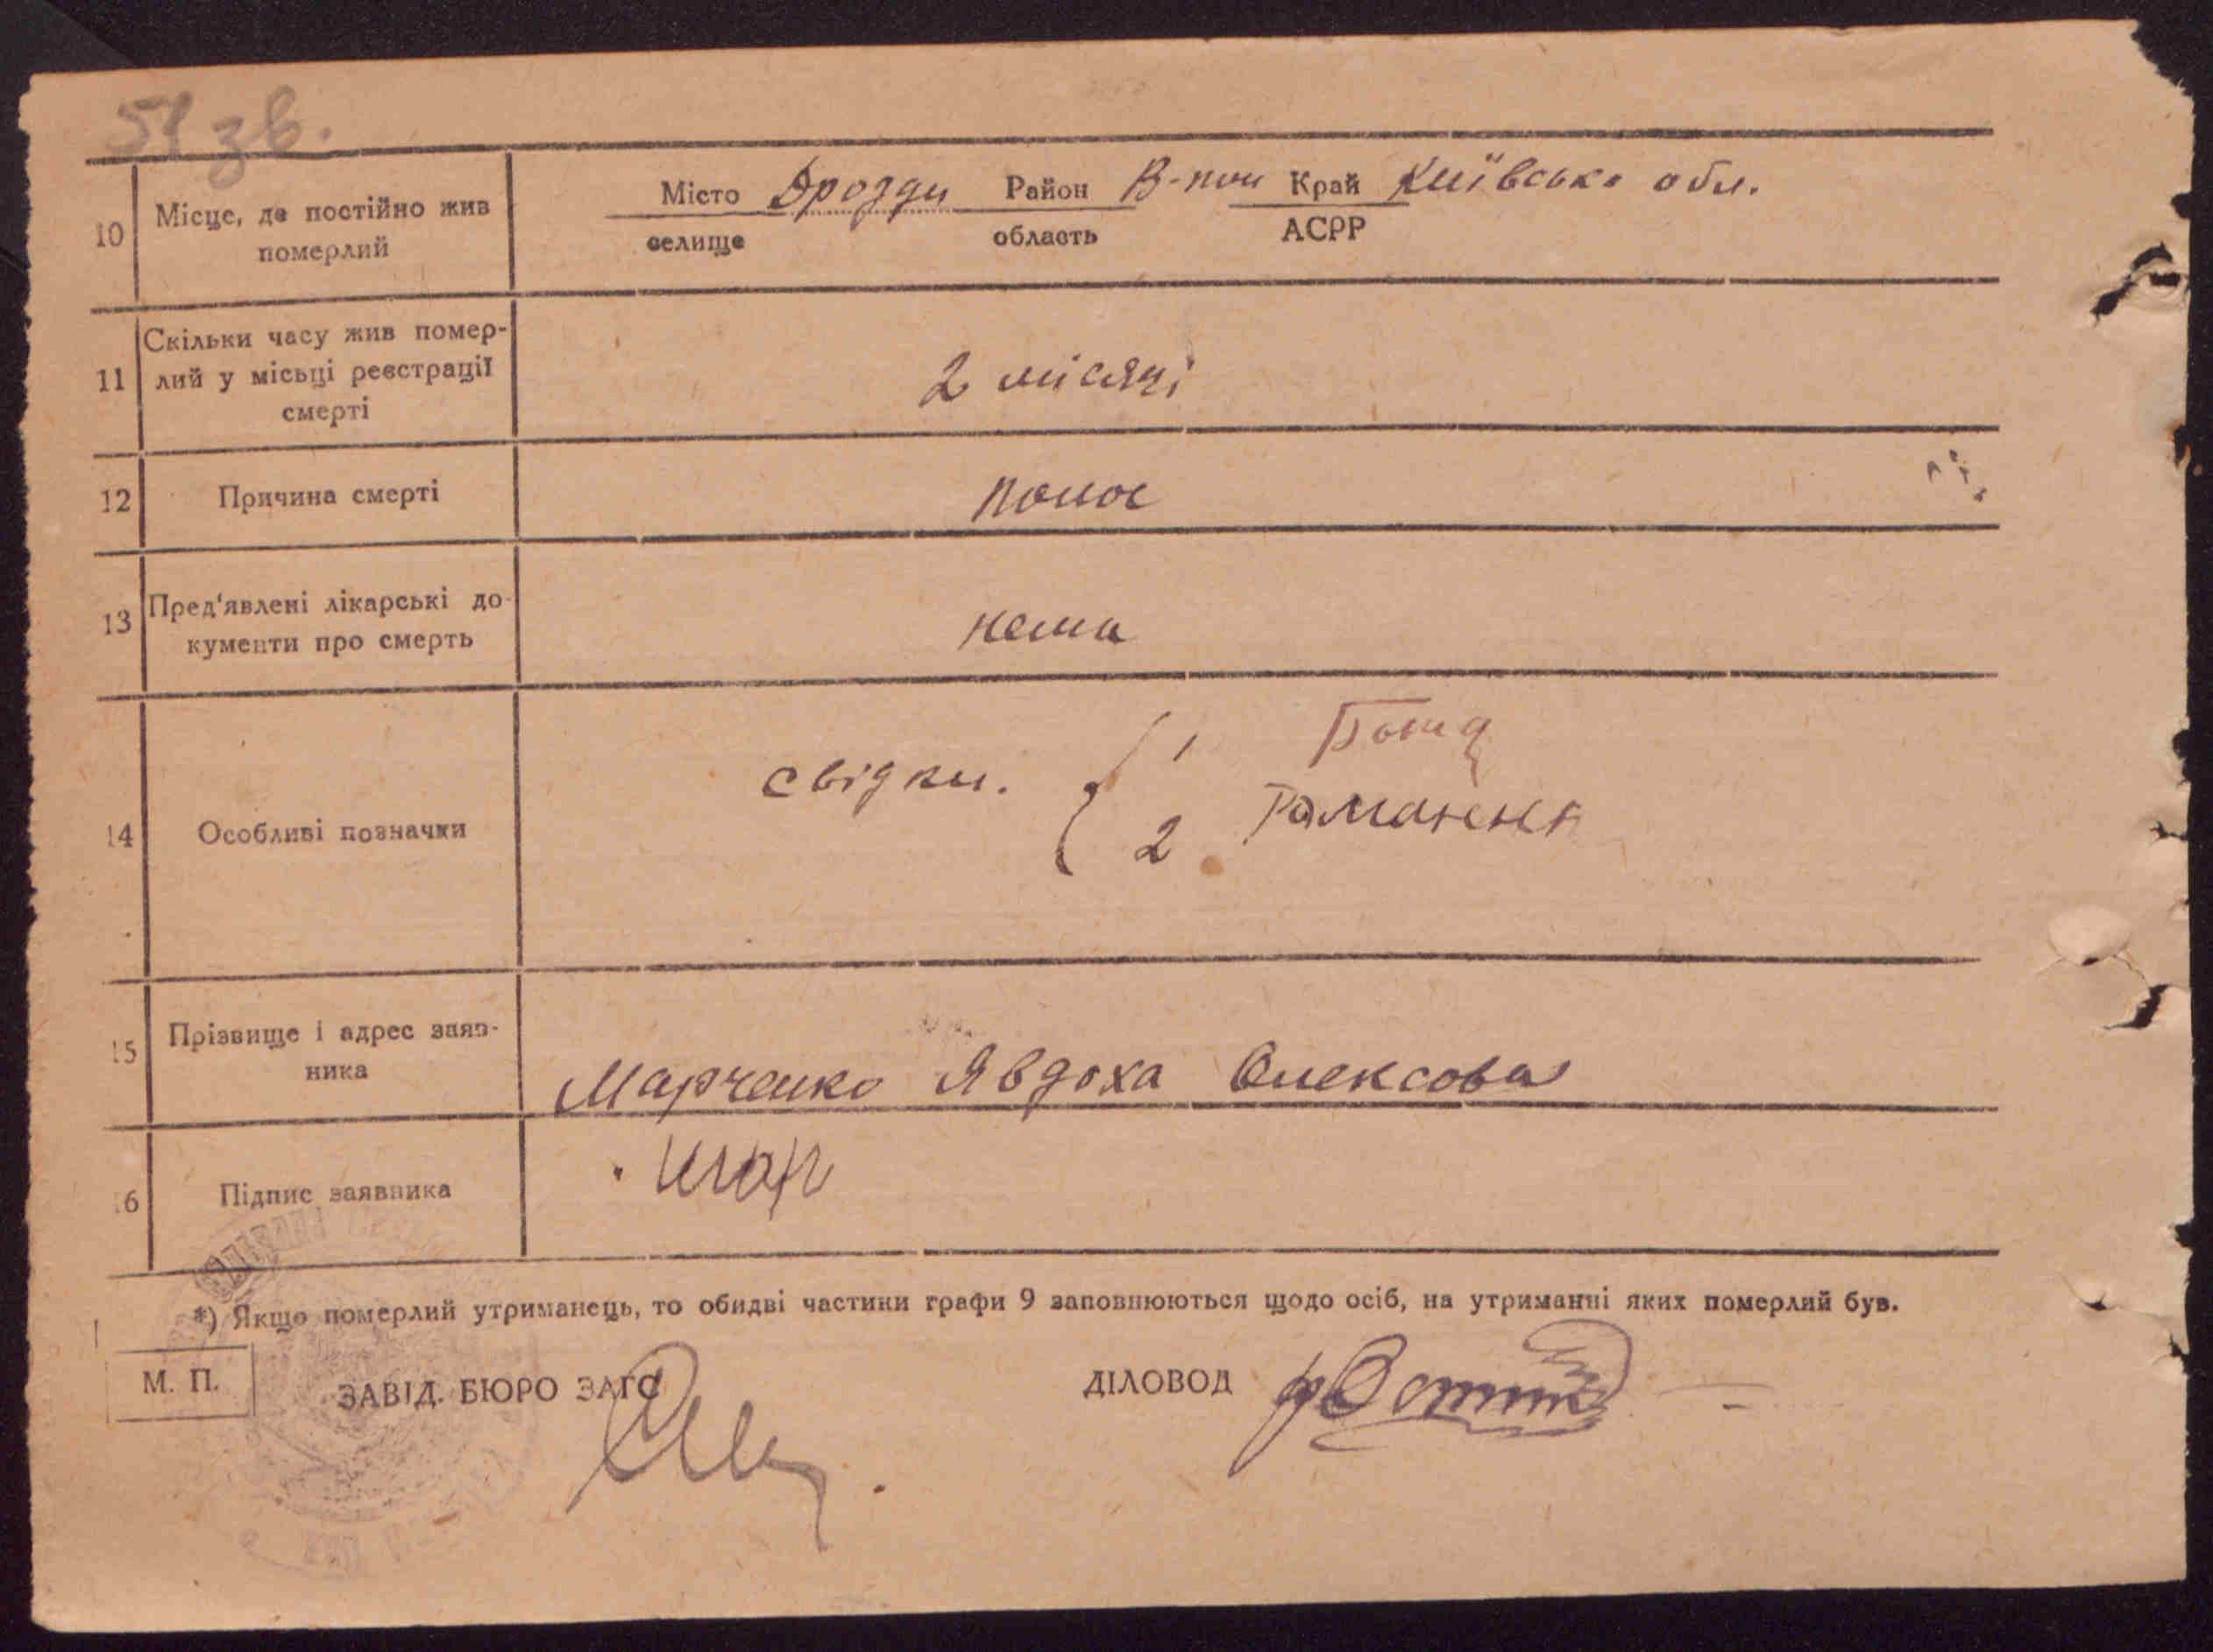 51 зв.
10 Місце, де постійно жив померлий
Місто Дрозди Район В-пол Край Київсько обл.
селище область АСРР
11 Скільки часу жив помер-
лий у місьці реєстрації
смерті
2 місяці
12 Причина смерті
понос
13 Пред'явлені лікарські до-
кументи про смерть
нема
14 Особливі позначки
свідки. 1
2 Романенк
15 Прізвище і адрес заяв-
ника
Марченко Явдоха Олексова
16 Підпис заявника
*) Якщо померлий утриманець, то обидві частини графи 9 заповнюються щодо осіб, на утриманні яких померлий був.
М. П.
ЗАВІД. БЮРО ЗАГС
ДІЛОВОД